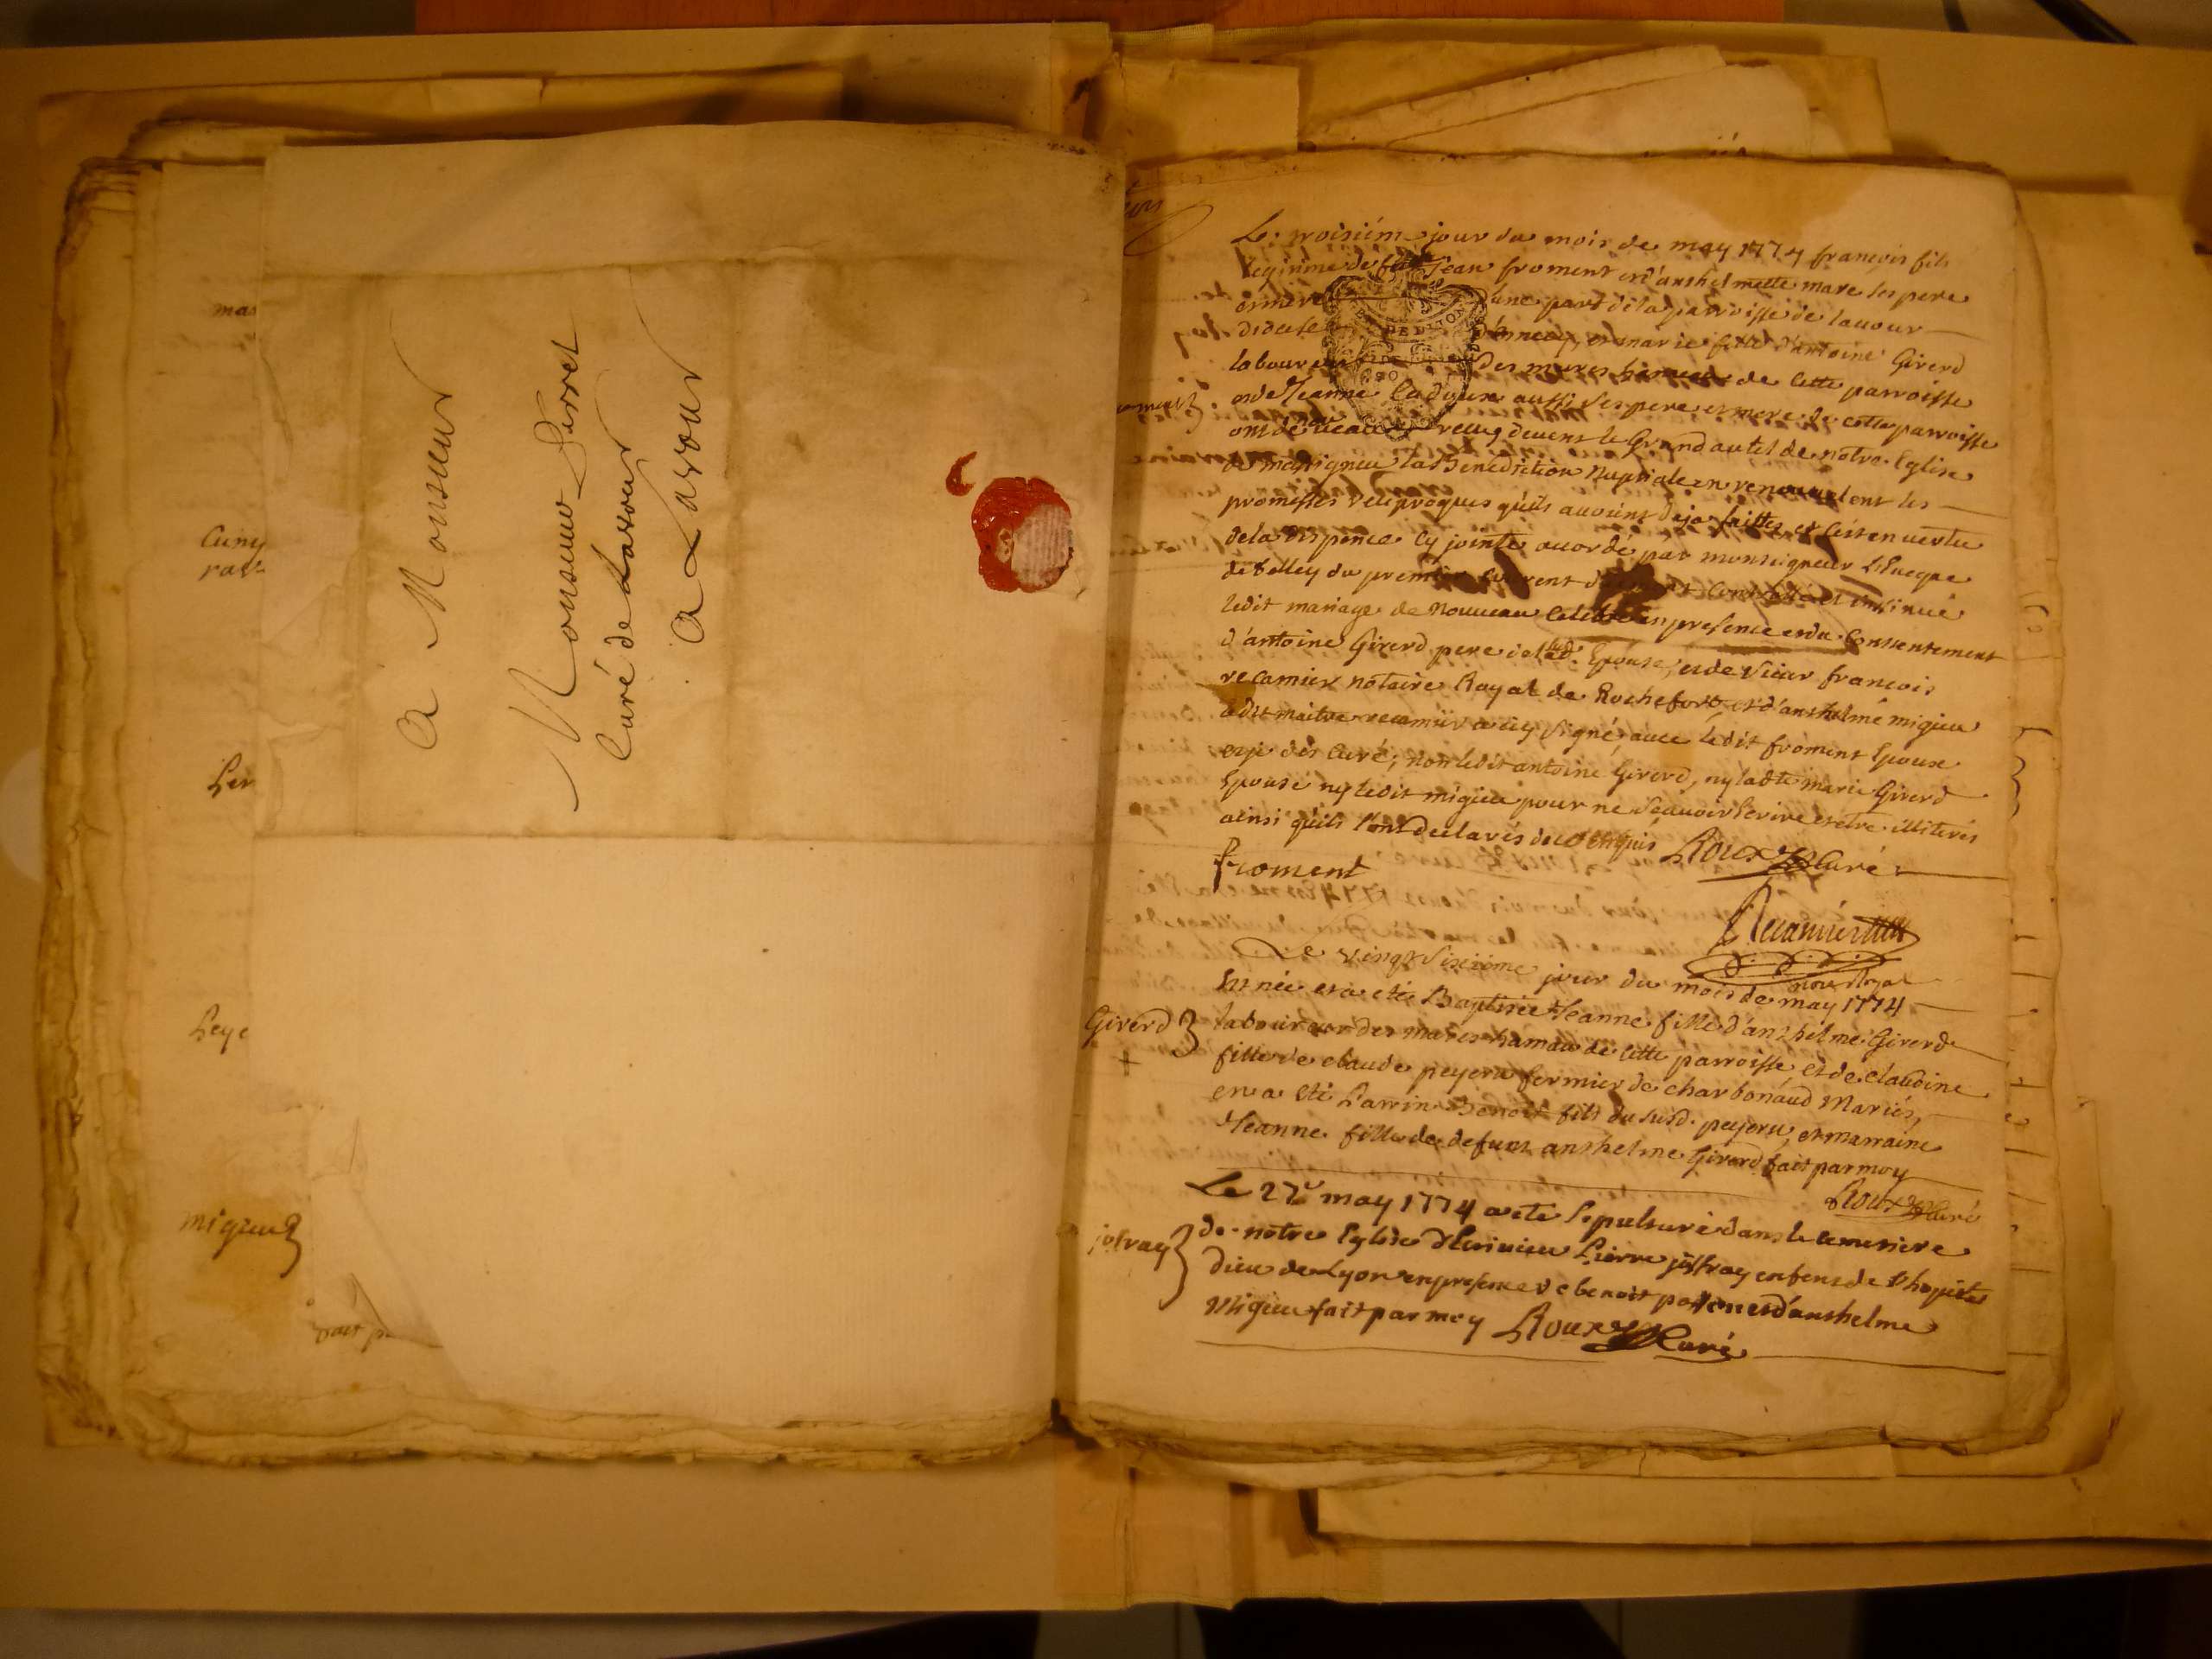 mas
Cuny
Per
Peye
migieu
A Monsieur
Monsieur Perret
Curé de Lavour
A Lavour
Le troisiéme jour du mois de may 1774 francois fils
legitime de feu Jean froment et d'anthelmette mare ses pere
et mere d'une part de la parroisse de lavour
diocese d'annecy, et marie fille d'antoine Girerd
laboureur des mures hameau de cette parroisse
et de Jeanne aussi ses pere et mere de cette parroisse
ont de nouveau receu devent le Grand autel de notre Eglise
de la Benediction Nuptiale en renouvelent les
promesses reciproques qu'ils avoient deja faittes et c'est en vertu
de la dispence cy jointe accordé par monseigneur L'Eveque
de Belley du premier courent controllé et insinué
ledit mariage de nouveau celebré en presence et du consentement
d'antoine Girerd pere de lad. Epouse, et de sieur francois
recamier notaire Royal de Rochefort et d'anthelme migieu
ledit maitre recamier a icy signé avec ledit froment Epoux
et je dit curé, non ledit antoine Girerd, ny ladte marie Girerd
Epouse ny ledit migieu pour ne sçauoir Ecrire et etre illiterés
ainsi qu'ils l'ont declarés de ce enquis Roux Curé
froment
Recamier
nore Royal
Le vingt sixieme jour du mois de may 1774
Girerd
Est née et a eté Baptisée Jeanne fille d'anthelme Girerd
laboureur des mures hamau de cette parroisse et de claudine
fille de claude peyeru fermier de charbonaud Mariés,
en a eté Parrin Benoit fils du susd. peyeru, et marraine
Jeanne fille de defunt anthelme Girerd fait par moy
Roux Curé
Le 27e may 1774 a eté sepulturé dans le cemetiere
joffray
de notre Eglise Pierre joffray enfent de
dieu de Lyon en presence de benoit et d'anthelme
Migieu fait par moy Roux Curé